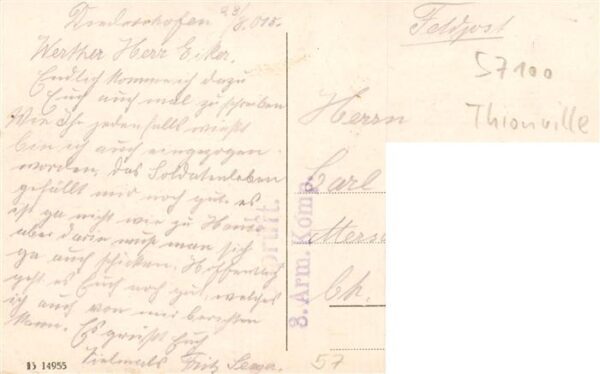 Niederhofen 23/8. 015.
Werther Herr Eiker.
Endlich komme ich dazu
Euch auch mal zu schreiben
Wie Ihr jedenfalls wießt
bin ich auch eingezogen
worden, das Soldatenleben
gefällt mir noch gut. es
ist ga nicht wie zu Hause
aber darin muß man sich
ga auch schicken. Hoffentlich
geht es Euch noch gut, welches
ich auch von mir berichten
kann. Es grüßt Euch
Vielmals Fritz
15 14955
prüft.
3. Arm. Komp.
Feldpost
57100
Thionville
Herrn
Carl
57